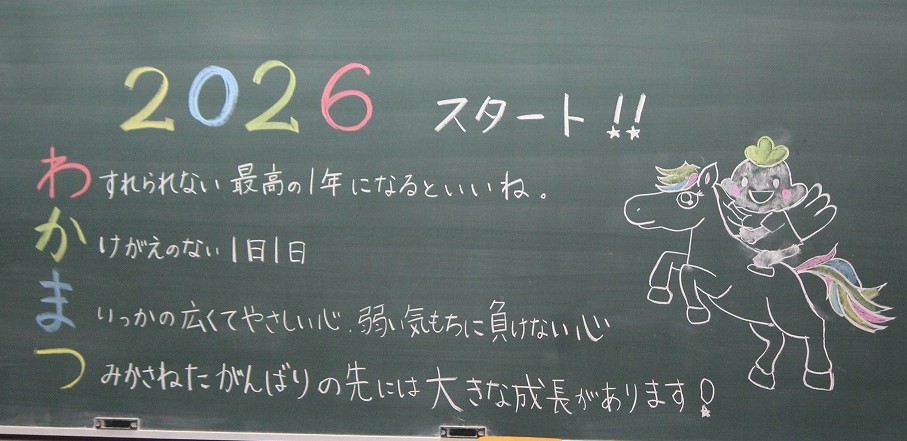 2026 スタート!!
わすれられない最高の1年になるといいね。
かけがえのない1日1日
まいっかの広くてやさしい心、弱い気もちに負けない心
つみかさねたがんばりの先には大きな成長があります!